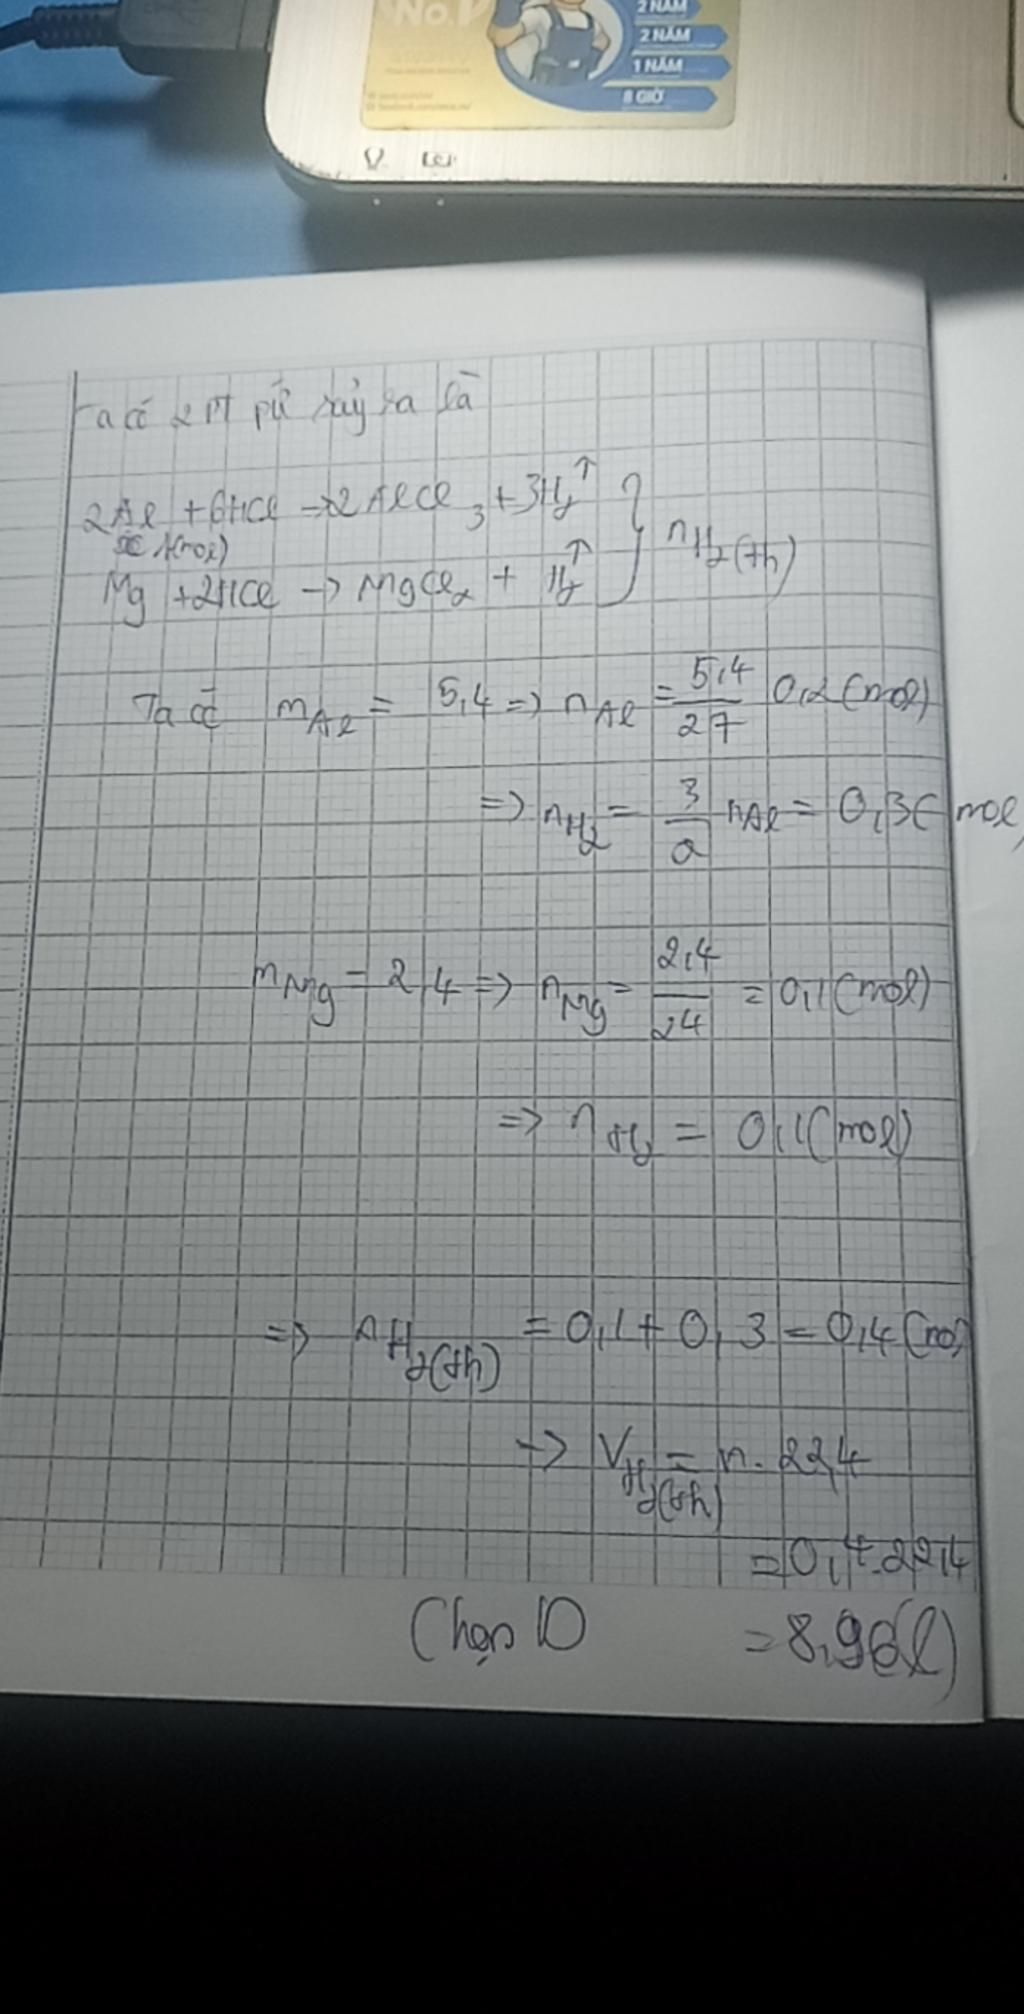 No.1
2 NĂM
2 NĂM
1 NĂM
8 GIỜ
Ta có 2 PT pứ xảy ra là
2Al + 6HCl → 2AlCl3 + 3H2↑
(mol)
Mg + 2HCl → MgCl2 + H2↑
nH2(th)
Ta có mAl = 5,4 => nAl = 5,4/27 0,2 (mol)
=> nH2 = 3/2 nAl = 0,3 (mol)
mMg = 2,4 => nMg = 2,4/24 = 0,1 (mol)
=> nH2 = 0,1 (mol)
=> nH2(th) = 0,1 + 0,3 = 0,4 (mol)
-> VH2(th) = n. 22,4
= 0,4. 22,4
Chọn D = 8,96 (l)